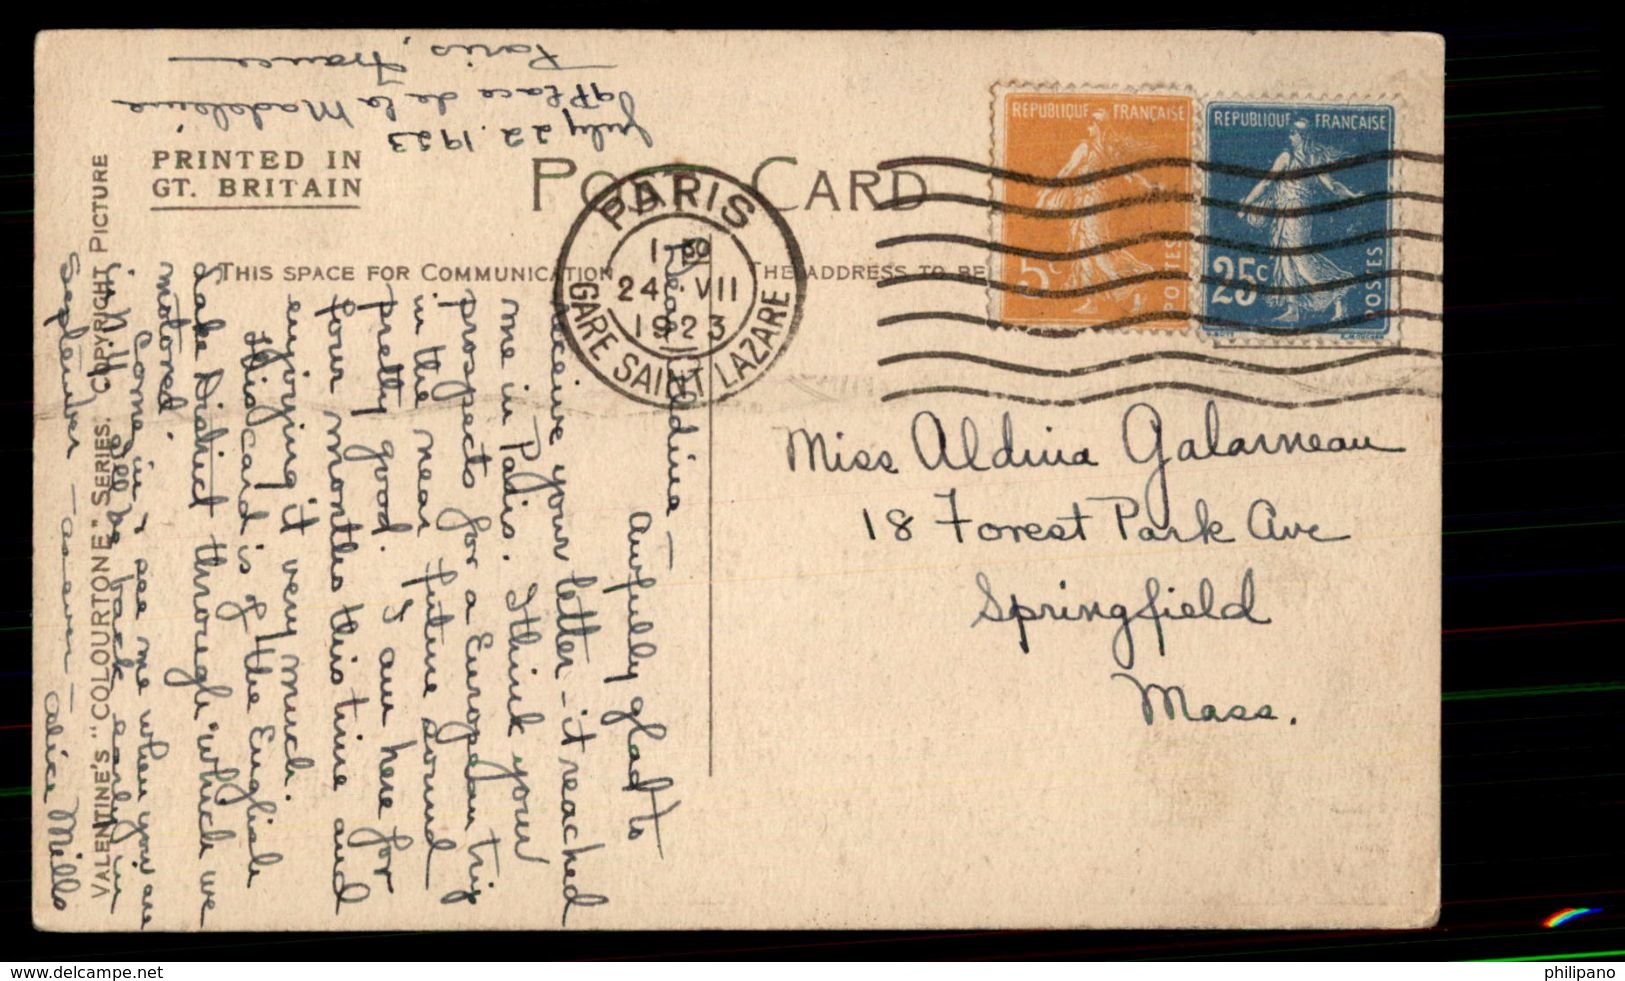 PRINTED IN
GT. BRITAIN
POST CARD
THIS SPACE FOR COMMUNICATION
THE ADDRESS TO BE
VALENTINE'S "COLOURTONE" SERIES. COPYRIGHT PICTURE
REPUBLIQUE FRANÇAISE
5c
POSTES
REPUBLIQUE FRANÇAISE
25c
POSTES
PARIS
1 30
24 VII
1923
GARE SAINT LAZARE
July 22. 1923
Place de la Madeleine
Paris, France
Dear Aldina —
Awfully glad to
receive your letter - it reached
me in Paris. I think your
prospects for a European trip
in the near future sound
pretty good. I am here for
four months this time and
enjoying it very much.
This card is of the English
Lake District through which we
motored.
Come in & see me when you are
in N.Y. I'll be back early in
September — as ever — Alice Mills
Miss Aldina Galarneau
18 Forest Park Ave
Springfield
Mass.
https://www.delcampe.net
philipano